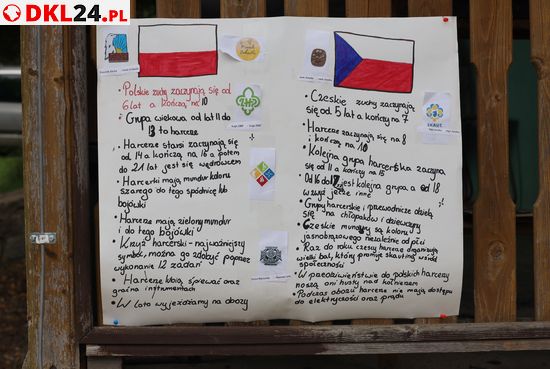 DKL24.PL
• Polskie zuchy zaczynają się od
6 lat a kończą na 10
• Grupa wiekowa od lat 11 do
13 to harcerze
• Harcerze starsi zaczynają się
od 14 a kończą na 16 a potem
do 21 lat jest się wędrowcem
• Harcerki mają mundur koloru
szarego do tego spódnicę lub
bojówki
• Harcerze mają zielony mundur
i do tego bojówki
• Krzyż harcerski - najważniejszy
symbol, można go zdobyć poprzez
wykonanie 12 zadań
• Harcerze lubią śpiewać oraz
grać na instrumentach
• W lato wyjeżdżamy na obozy
• Czeskie zuchy zaczynają
się od 5 lat a kończą na 7
• Harcerze zaczynają się na 8
i kończą na 10
• Kolejna grupa harcerska zaczyna
się od 11 a kończy na 15
• Od 16 do 18 jest kolejna grupa a od 18
wzwyż jeszcze inne
• Grupy harcerskie i przewodnicze dzielą
się na chłopaków i dziewczyny
• Czeskie mundury są koloru
jasnobrązowego niezależnie od płci
• Raz do roku czescy harcerze organizują
wielki bal, który promuje skauting wśród
społeczności
• W przeciwieństwie do polskich harcerzy
noszą oni husty nad kołnierzem
• Podczas obozu harcerze nie mają dostępu
do elektryczności oraz prądu
ZHP
SKAUT